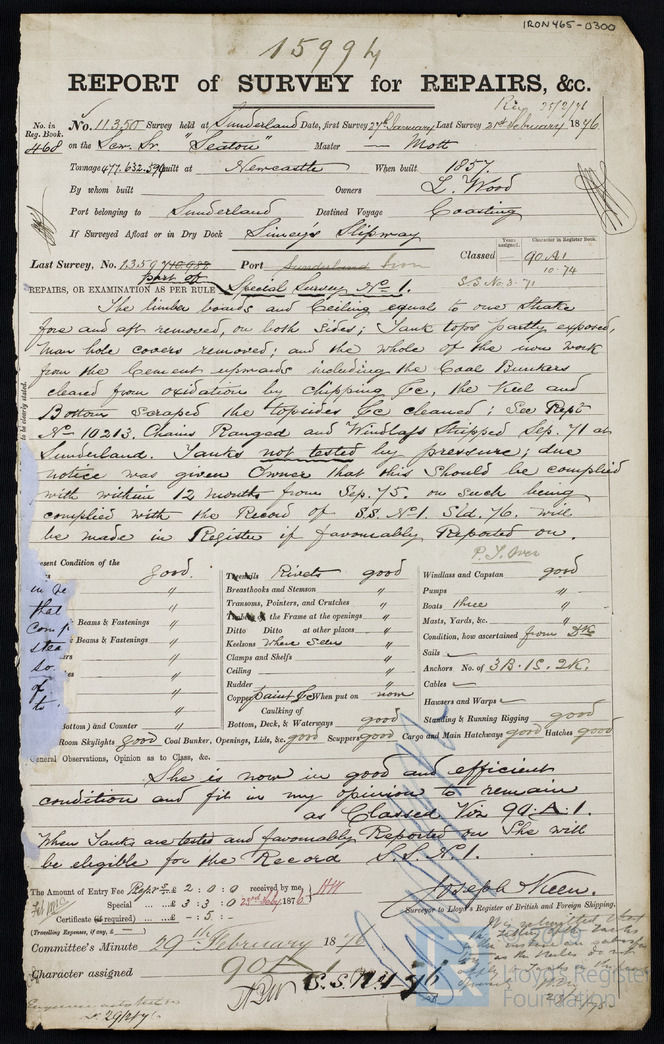 IRON465-0300
15994
REPORT of SURVEY for REPAIRS, &c.
Rec 25/2/76
No. in Reg. Book. No. 11350 Survey held at Sunderland Date, first Survey 27th January Last Survey 21st February 1876
468 on the Scr. Sr. "Seaton" Master — Mott
Tonnage 477.632.594 built at Newcastle When built 1857
By whom built Owners L. Wood
Port belonging to Sunderland Destined Voyage Coasting
If Surveyed Afloat or in Dry Dock Simey's Slipway
Years assigned. Character in Register Book.
Last Survey, No. 13597 Port Sunderland Iron Classed — 90.A1.
10.74
part of S.S. No. 3-71
REPAIRS, OR EXAMINATION AS PER RULE, Special Survey No. 1.
The limber boards and Ceiling equals to one Strake
fore and aft removed, on both sides; Tank tops partly exposed,
Man hole covers removed; and the whole of the iron work
from the Cement upwards including the Coal Bunkers
cleared from oxidation by chipping &c, the Keel and
Bottom Scraped the topsides &c cleaned; See Rept
No. 10213. Chains Ranged and Windlass Stripped Sep. 71 at
Sunderland. Tanks not tested by pressure; due
notice was given Owner that this Should be complied
with within 12 months from Sep. 75. on such being
complied with the Record of SS. No. 1. Sld. 76. will
be made in Register if favourably Reported on.
P. T. Over
to be clearly stated.
esent Condition of the good. Treenails Rivets good Windlass and Capstan good
Breasthooks and Stemson " Pumps "
Transoms, Pointers, and Crutches " Boats three "
that the Frame at the openings " Masts, Yards, &c. "
Beams & Fastenings " Ditto Ditto at other places " Condition, how ascertained from Dk
Beams & Fastenings " Keelsons Where Seen " Sails
Clamps and Shelfs " Anchors No. of 3B.1S.2K.
so. Ceiling " Cables
of Rudder " Hawsers and Warps
to. Copper paint &c When put on now Standing & Running Rigging good
Caulking of
ottom) and Counter " Bottom, Deck, & Waterways good
Room Skylights good Coal Bunker, Openings, Lids, &c. good Scuppers good Cargo and Main Hatchways good Hatches good
General Observations, Opinion as to Class, &c.
She is now in good and efficient
condition and fit in my opinion to remain
as Classed Viz 90.A.1.
When Tanks are tested and favourably Reported on She will
be eligible for the Record S.S. No. 1.
The Amount of Entry Fee £ 2 : 0 : 0 received by me,
Special ... £ 3 : 3 : 0 23rd Feby. 1876
Certificate (if required) ... — : 5 : —
(Travelling Expenses, if any, £ — )
Joseph Keen.
Surveyor to Lloyd's Register of British and Foreign Shipping.
Committee's Minute 29th February 1876
Character assigned 90A1
S.S. No. 1 76
29/2/76
Lloyd's Register
Foundation